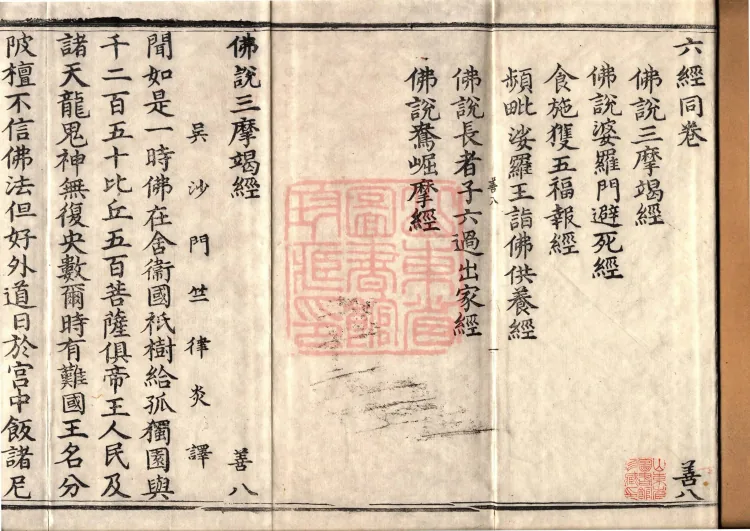 六經同卷
善八
佛說三摩竭經
佛說婆羅門避死經
食施獲五福報經
頻毗娑羅王詣佛供養經
善八
佛說長者子六過出家經
佛說鴦崛摩經
山東省圖書館珍藏印
佛說三摩竭經
善八
吳沙門竺律炎譯
聞如是一時佛在舍衞國祇樹給孤獨園與
千二百五十比丘五百菩薩俱帝王人民及
諸天龍鬼神無復央數爾時有難國王名分
陂檀不信佛法但好外道日於宮中飯諸尼